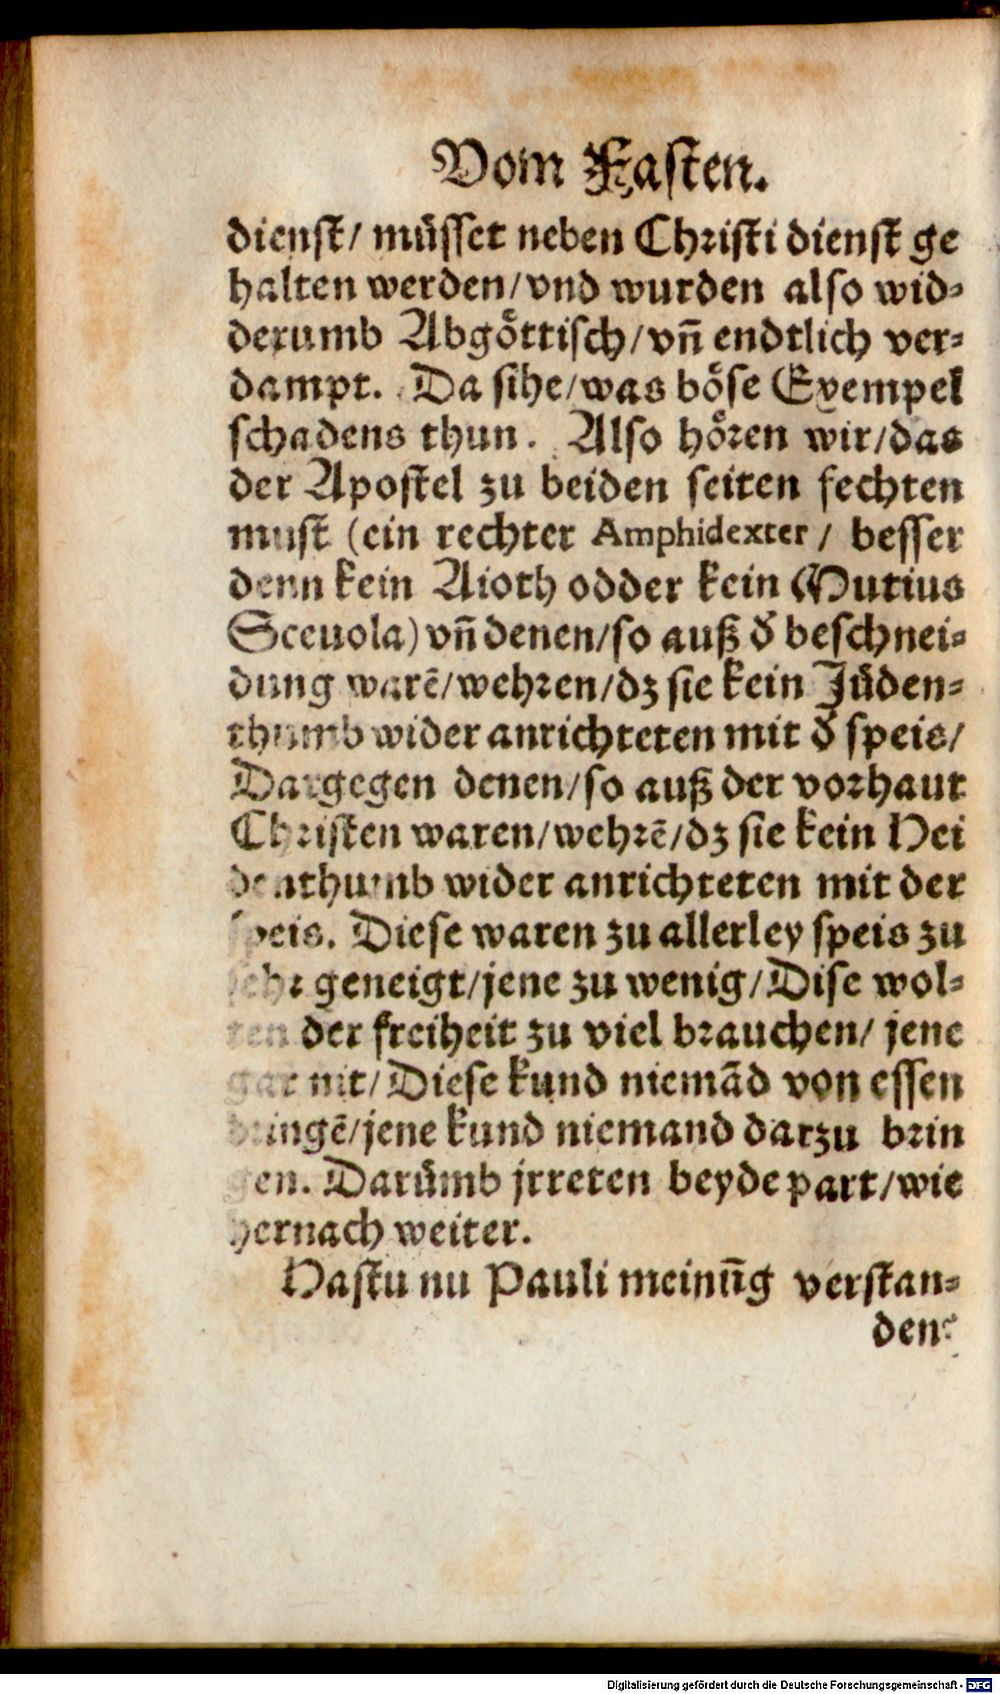 Vom Fasten.
dienst/ müsset neben Christi dienst ge
halten werden/vnd wurden also wid⸗
derumb Abgöttisch/vñ endtlich ver⸗
dampt. Da sihe/was böse Exempel
schadens thun. Also hören wir/das
der Apostel zu beiden seiten fechten
must (ein rechter Amphidexter / besser
denn kein Aioth odder kein Mutius
Sceuola) vñ denen/so auß d̄ beschnei⸗
dung warē/wehren/dz sie kein Jüden⸗
thumb wider anrichteten mit d̄ speis/
Dargegen denen/so auß der vorhaut
Christen waren/wehrē/dz sie kein Hei
denthumb wider anrichteten mit der
speis. Diese waren zu allerley speis zu
sehr geneigt/jene zu wenig/Dise wol⸗
ten der freiheit zu viel brauchen/ jene
gar nit/Diese kund niemād von essen
bringē/jene kund niemand darzu brin
gen. Darümb jrreten beyde part/wie
hernach weiter.
Hastu nu Pauli meinūg verstan⸗
den?
Digitalisierung gefördert durch die Deutsche Forschungsgemeinschaft - DFG